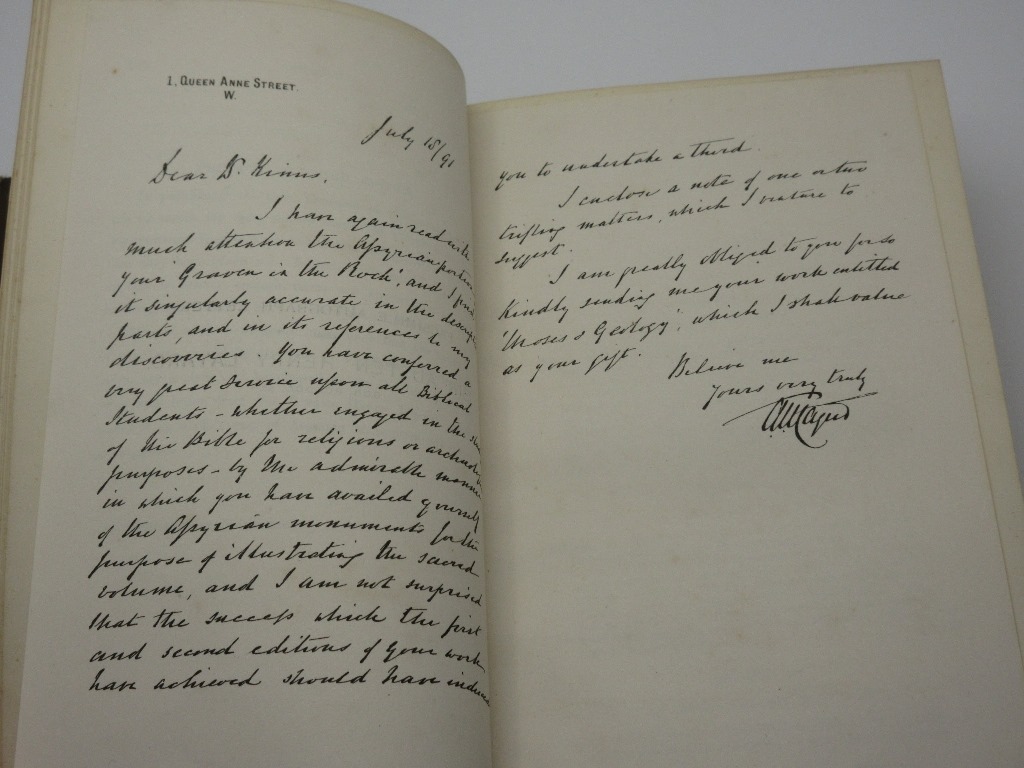 1. QUEEN ANNE STREET.
W.
July 15/91
Dear Dr. Kinns,
I have again read with
much attention the Assyrian portion
your 'Graven in the Rock', and I find
it singularly accurate in the descript
parts, and in its references to my
discoveries. You have conferred a
very great service upon all Biblical
Students – whether engaged in the
of the Bible for religious or
purposes – by the admirable manner
in which you have availed yourself
of the Assyrian monuments for the
purpose of illustrating the sacred
volume, and I am not surprised
that the success which the first
and second editions of your work
have achieved should have induced
you to undertake a third.
I enclose a note of one or two
trifling matters, which I venture to
suggest.
I am greatly obliged to you for so
kindly sending me your work entitled
'Moses & Geology', which I shall value
as your gift.
Believe me
Yours very truly